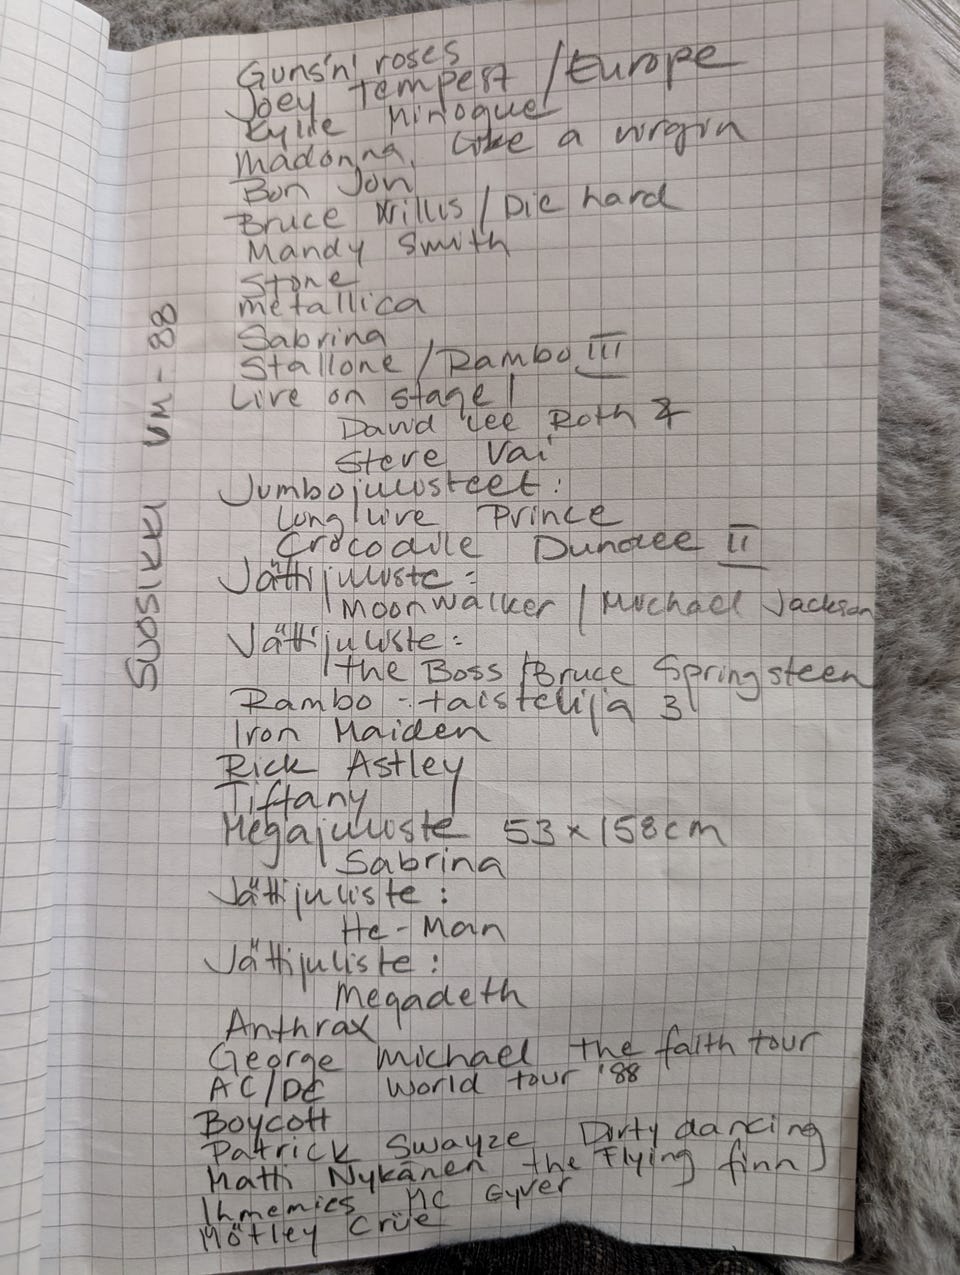 SUOSIKKI VM-88
Guns'n' roses
Joey Tempest / Europe
Kylie Minogue
Madonna, Like a virgin
Bon Jovi
Bruce Willis / Die hard
Mandy Smith
Stone
Metallica
Sabrina
Stallone / Rambo III
Live on stage!
David Lee Roth &
Steve Vai
Jumbojulisteet:
Long live Prince
Crocodile Dundee II
Jättijuliste:
Moonwalker / Michael Jackson
Jättijuliste:
the Boss / Bruce Springsteen
Rambo - taistelija 3
Iron Maiden
Rick Astley
Tiffany
Megajuliste 53 x 158 cm
Sabrina
Jättijuliste:
He-Man
Jättijuliste:
Megadeth
Anthrax
George Michael the faith tour
AC/DC World tour '88
Boycott
Patrick Swayze Dirty dancing
Matti Nykänen the Flying finn
Ihmemies Mc Gyver
Mötley Crüe